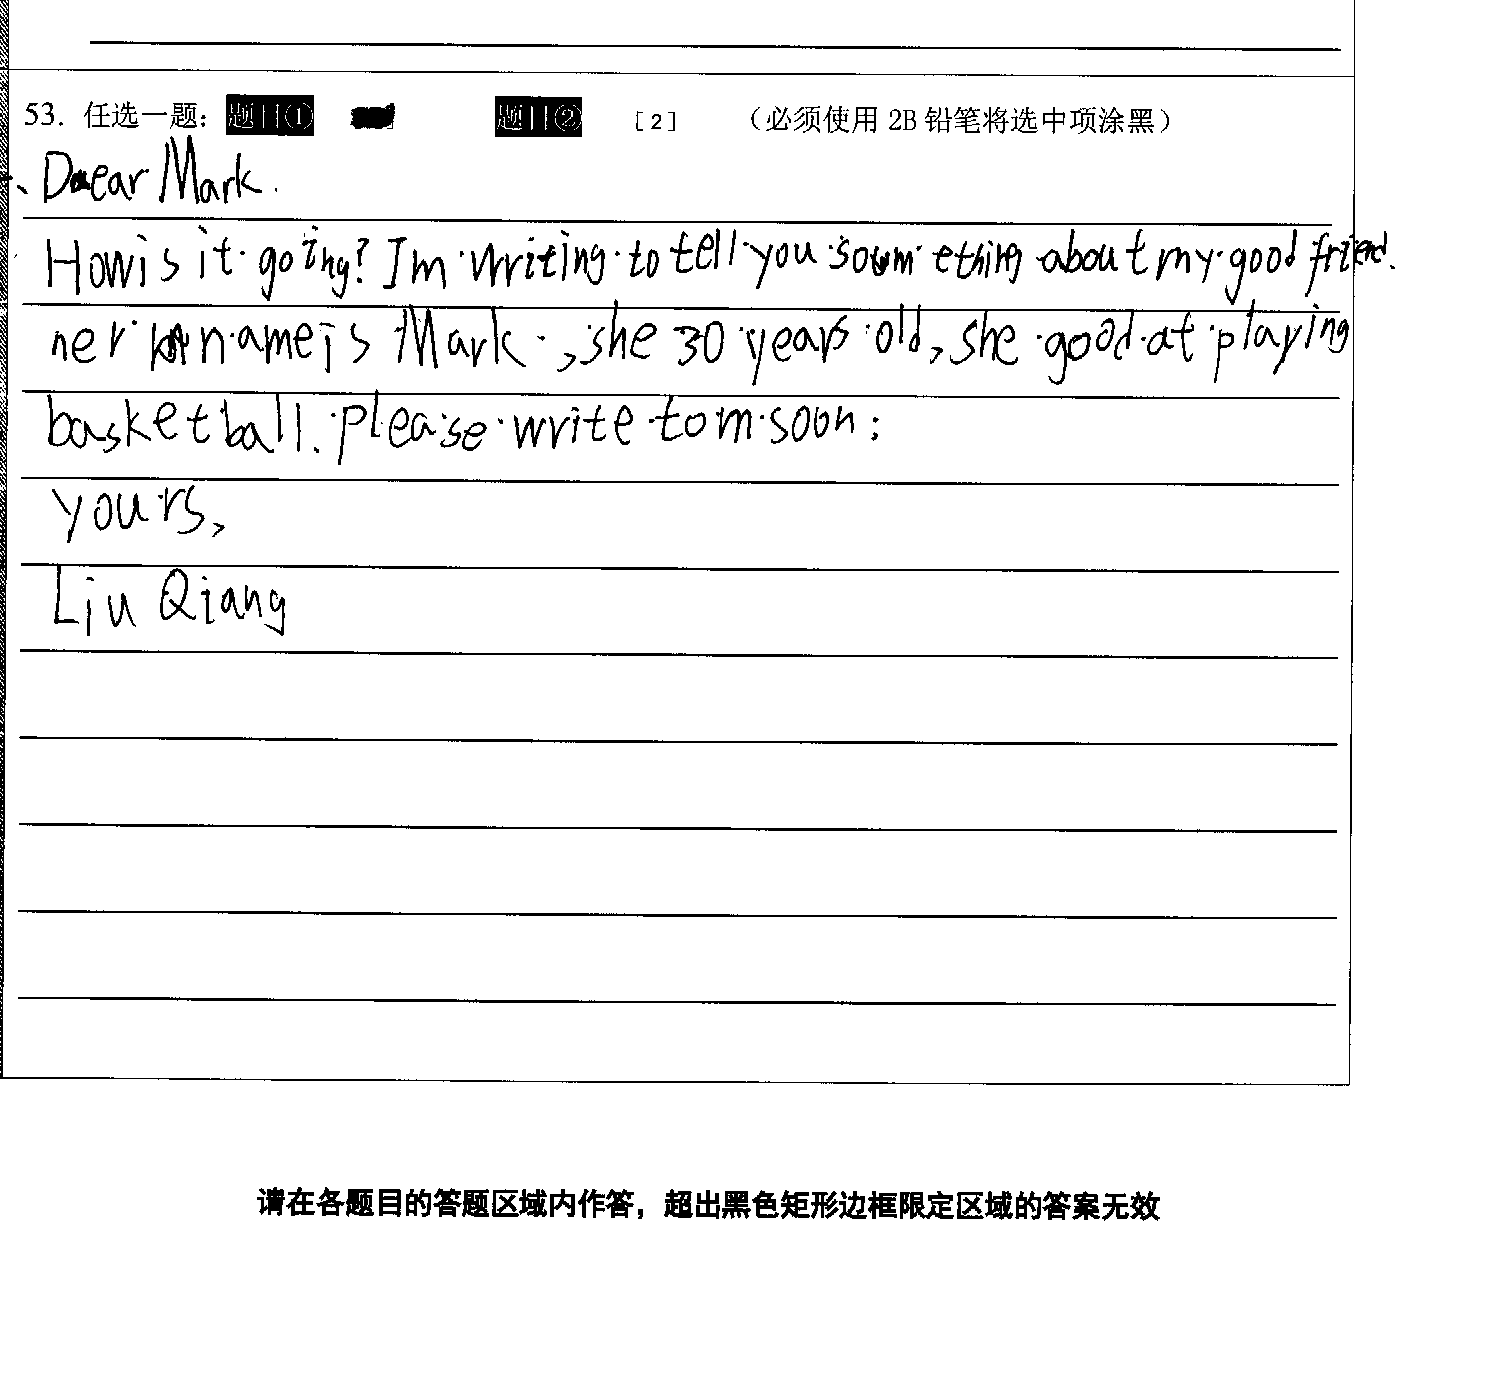 53. 任选一题： 题目① 题目② [2] （必须使用 2B 铅笔将选中项涂黑）
Dear Mark.
How is it going? Im writing to tell you something about my good friend.
ner name is Mark, she 30 years old, she good at playing
basketball. please write to m soon:
yours,
Liu Qiang
请在各题目的答题区域内作答，超出黑色矩形边框限定区域的答案无效